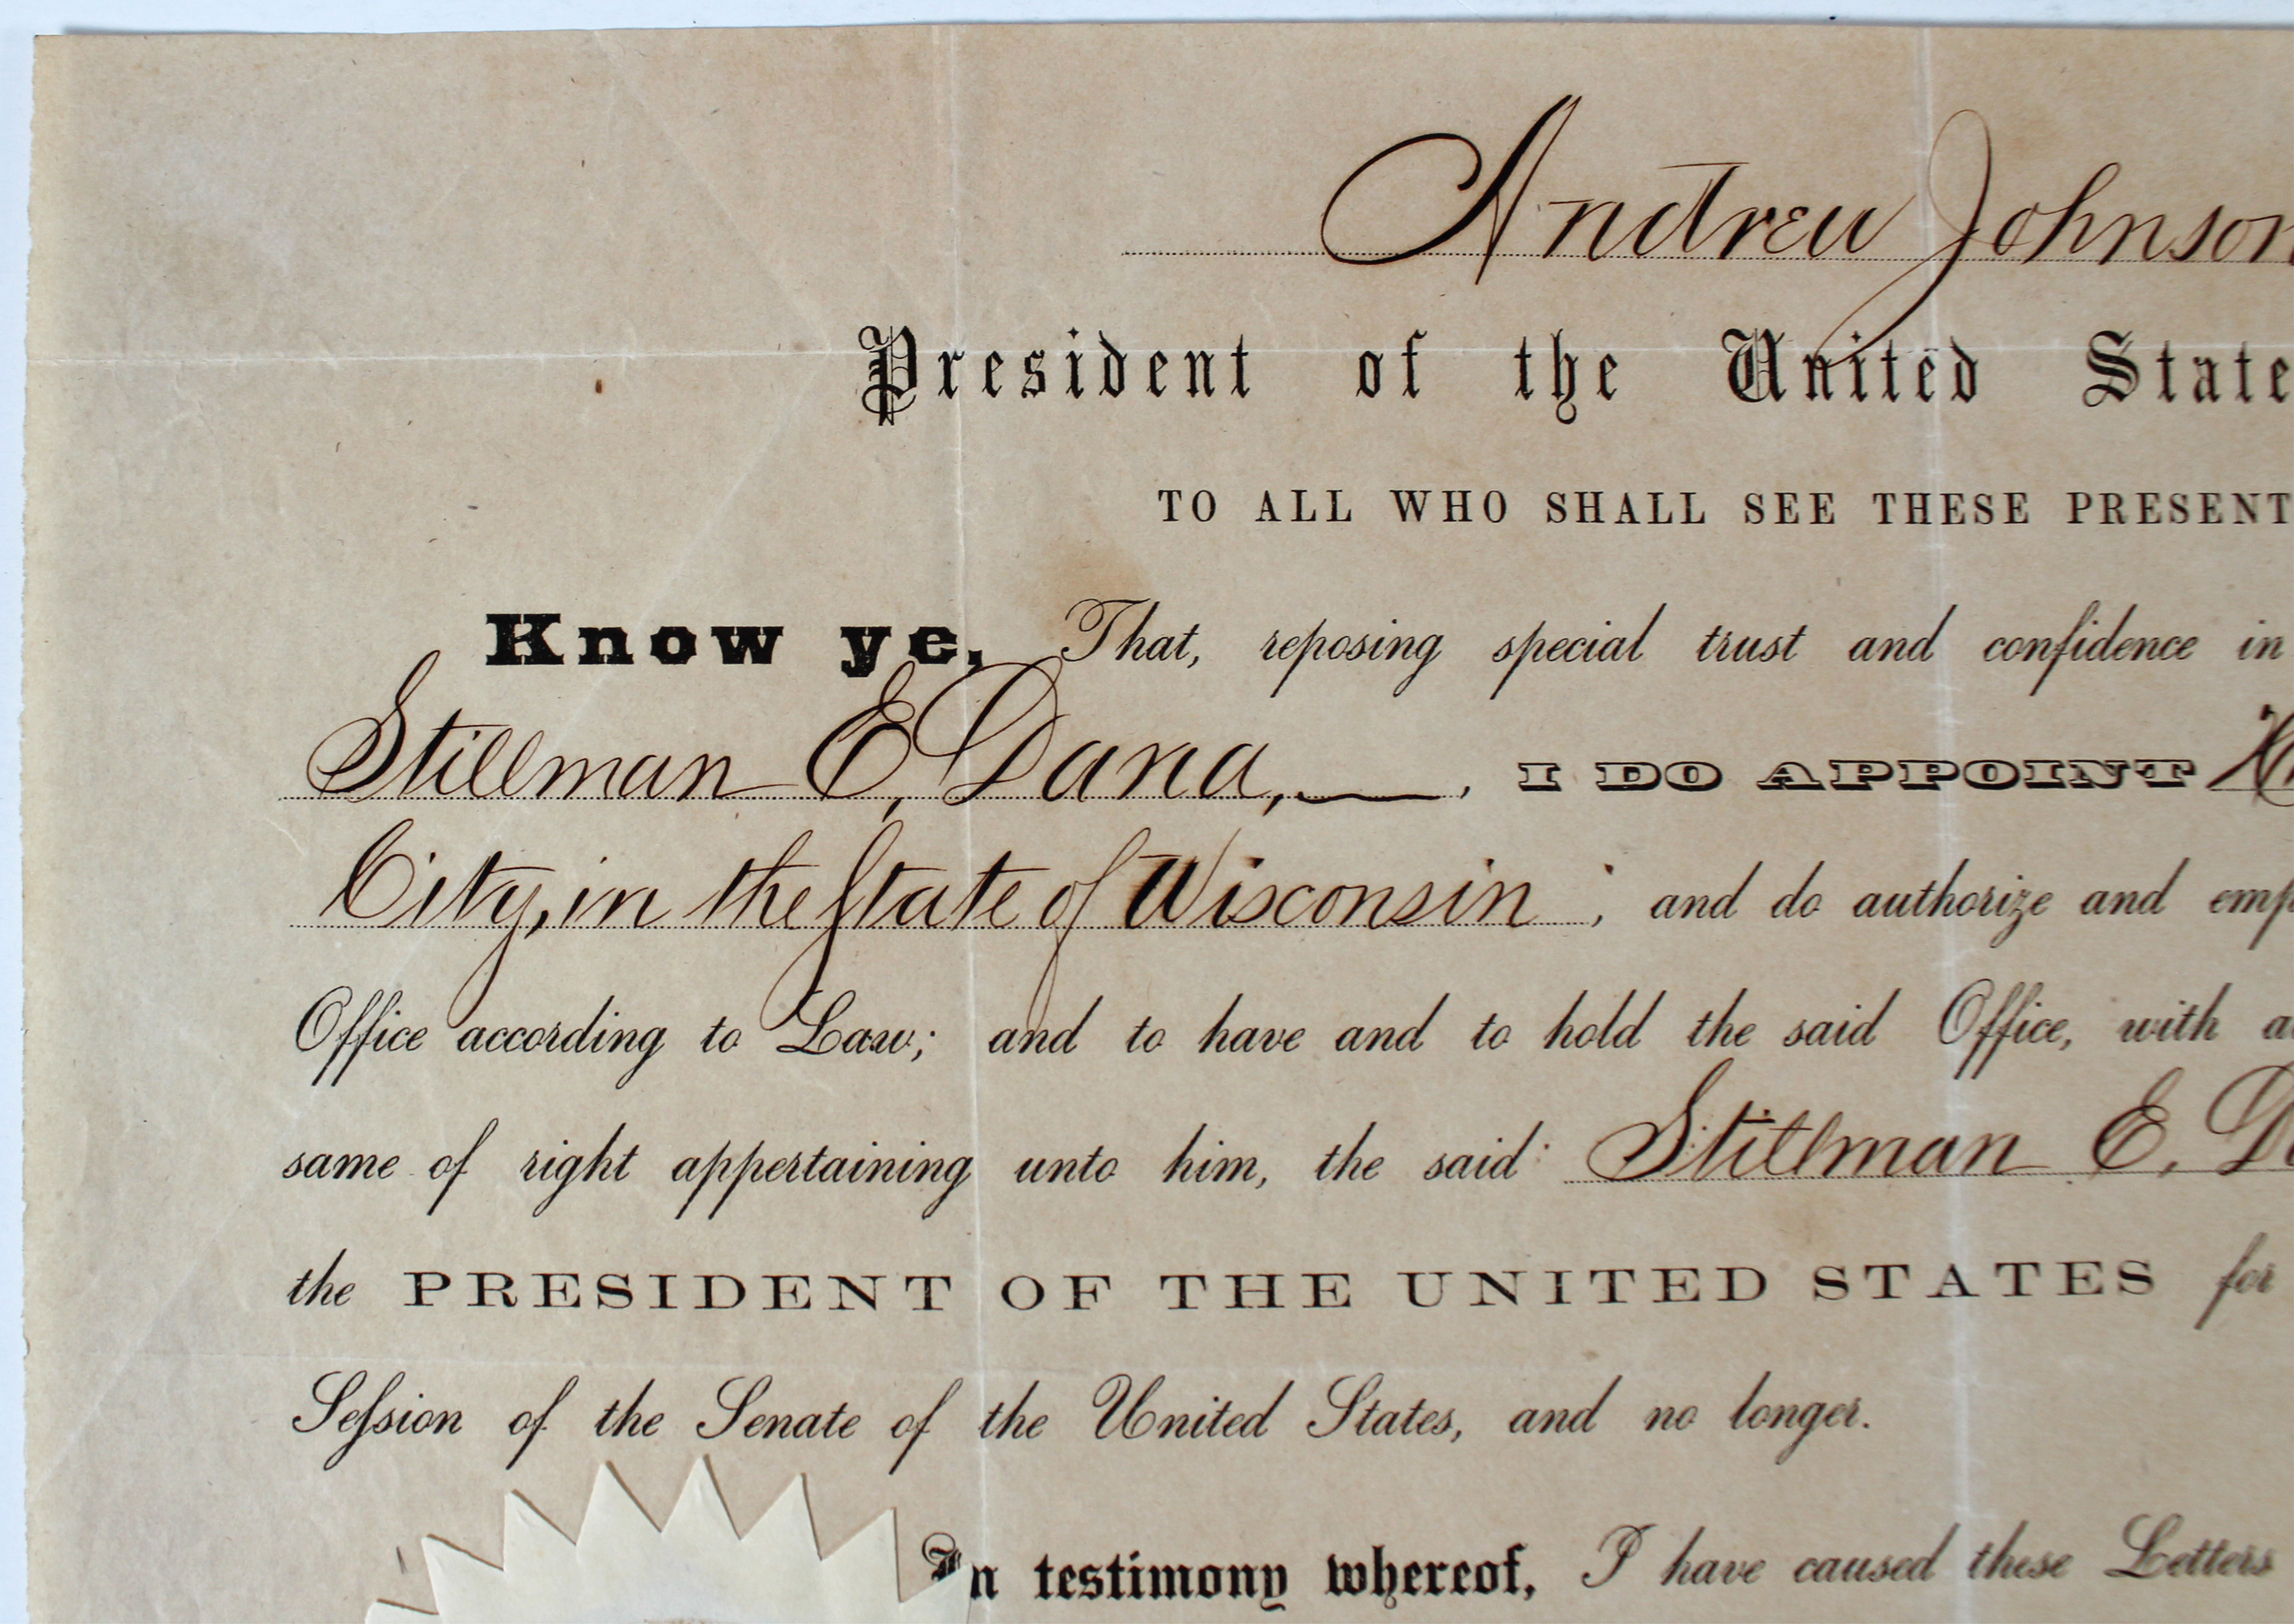 Andrew Johnson
President of the United State
TO ALL WHO SHALL SEE THESE PRESENT
Know ye, That, reposing special trust and confidence in
Stillman E, Dana, , I DO APPOINT
City, in the State of Wisconsin ; and do authorize and emp
Office according to Law; and to have and to hold the said Office, with a
same of right appertaining unto him, the said Stillman E. D
the PRESIDENT OF THE UNITED STATES for
Seſsion of the Senate of the United States, and no longer.
In testimony whereof, I have caused these Letters